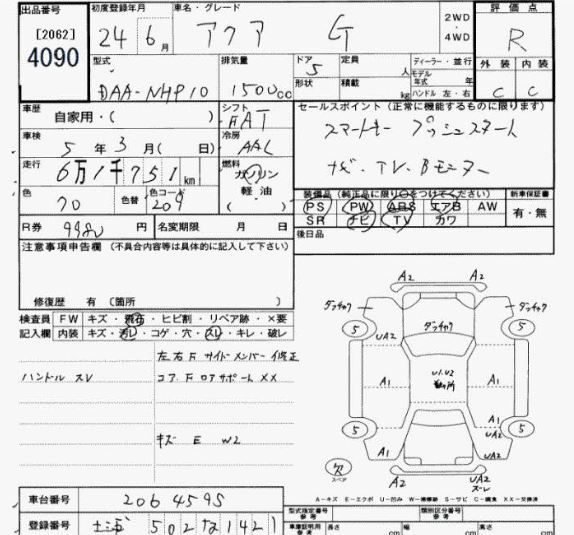 出品番号
[2062]
4090
初度登録年月 車名・グレード 2WD・4WD 評価点
24年 6月 アクア G R
型式 排気量 ドア 定員 ディーラー・並行
DAA-NHP10 1500cc 5 人 モデル年式 年 外装 内装
形状 積載 kg ハンドル 左・右 C C
車歴 シフト セールスポイント(正常に機能するものに限ります)
自家用・( ) FAT スマートキー プッシュスタート
車検 冷房
5年 3月( 日) AAC ナビ・TV・Bモニター
走行 燃料
6万1千751km ガソリン
軽油
( )
色 色替 色コード 装備品(純正品に限り○をつけてください) 新車保証書
70 209 PS PW ABS エアB AW 有・無
SR ナビ TV カワ
R券 9980円 名変期限 月 日 後日品
注意事項申告欄(不具合内容等は具体的に記入して下さい)
修復歴 有(箇所 )
検査員記入欄 FW キズ・飛石・ヒビ割・リペア跡・×要
内装 キズ・汚レ・コゲ・穴・スレ・キレ・破レ
左右Fサイドメンバー修正
ハンドル スレ コアF ロアサポートXX
キズ E W2
A2 A2
5 UA2 5
A1 U1.U2 A1
A1
UA2
5 5
A1 UA2
A2 UA2
スペア
A-キズ E-エクボ U-凹み W-補修跡 S-サビ C-腐食 XX-交換済
車台番号 2064595
登録番号 502 1421
型式指定番号 参考 類別区分番号 参考
車庫証明用 参考 長さ cm 幅 cm 高さ cm